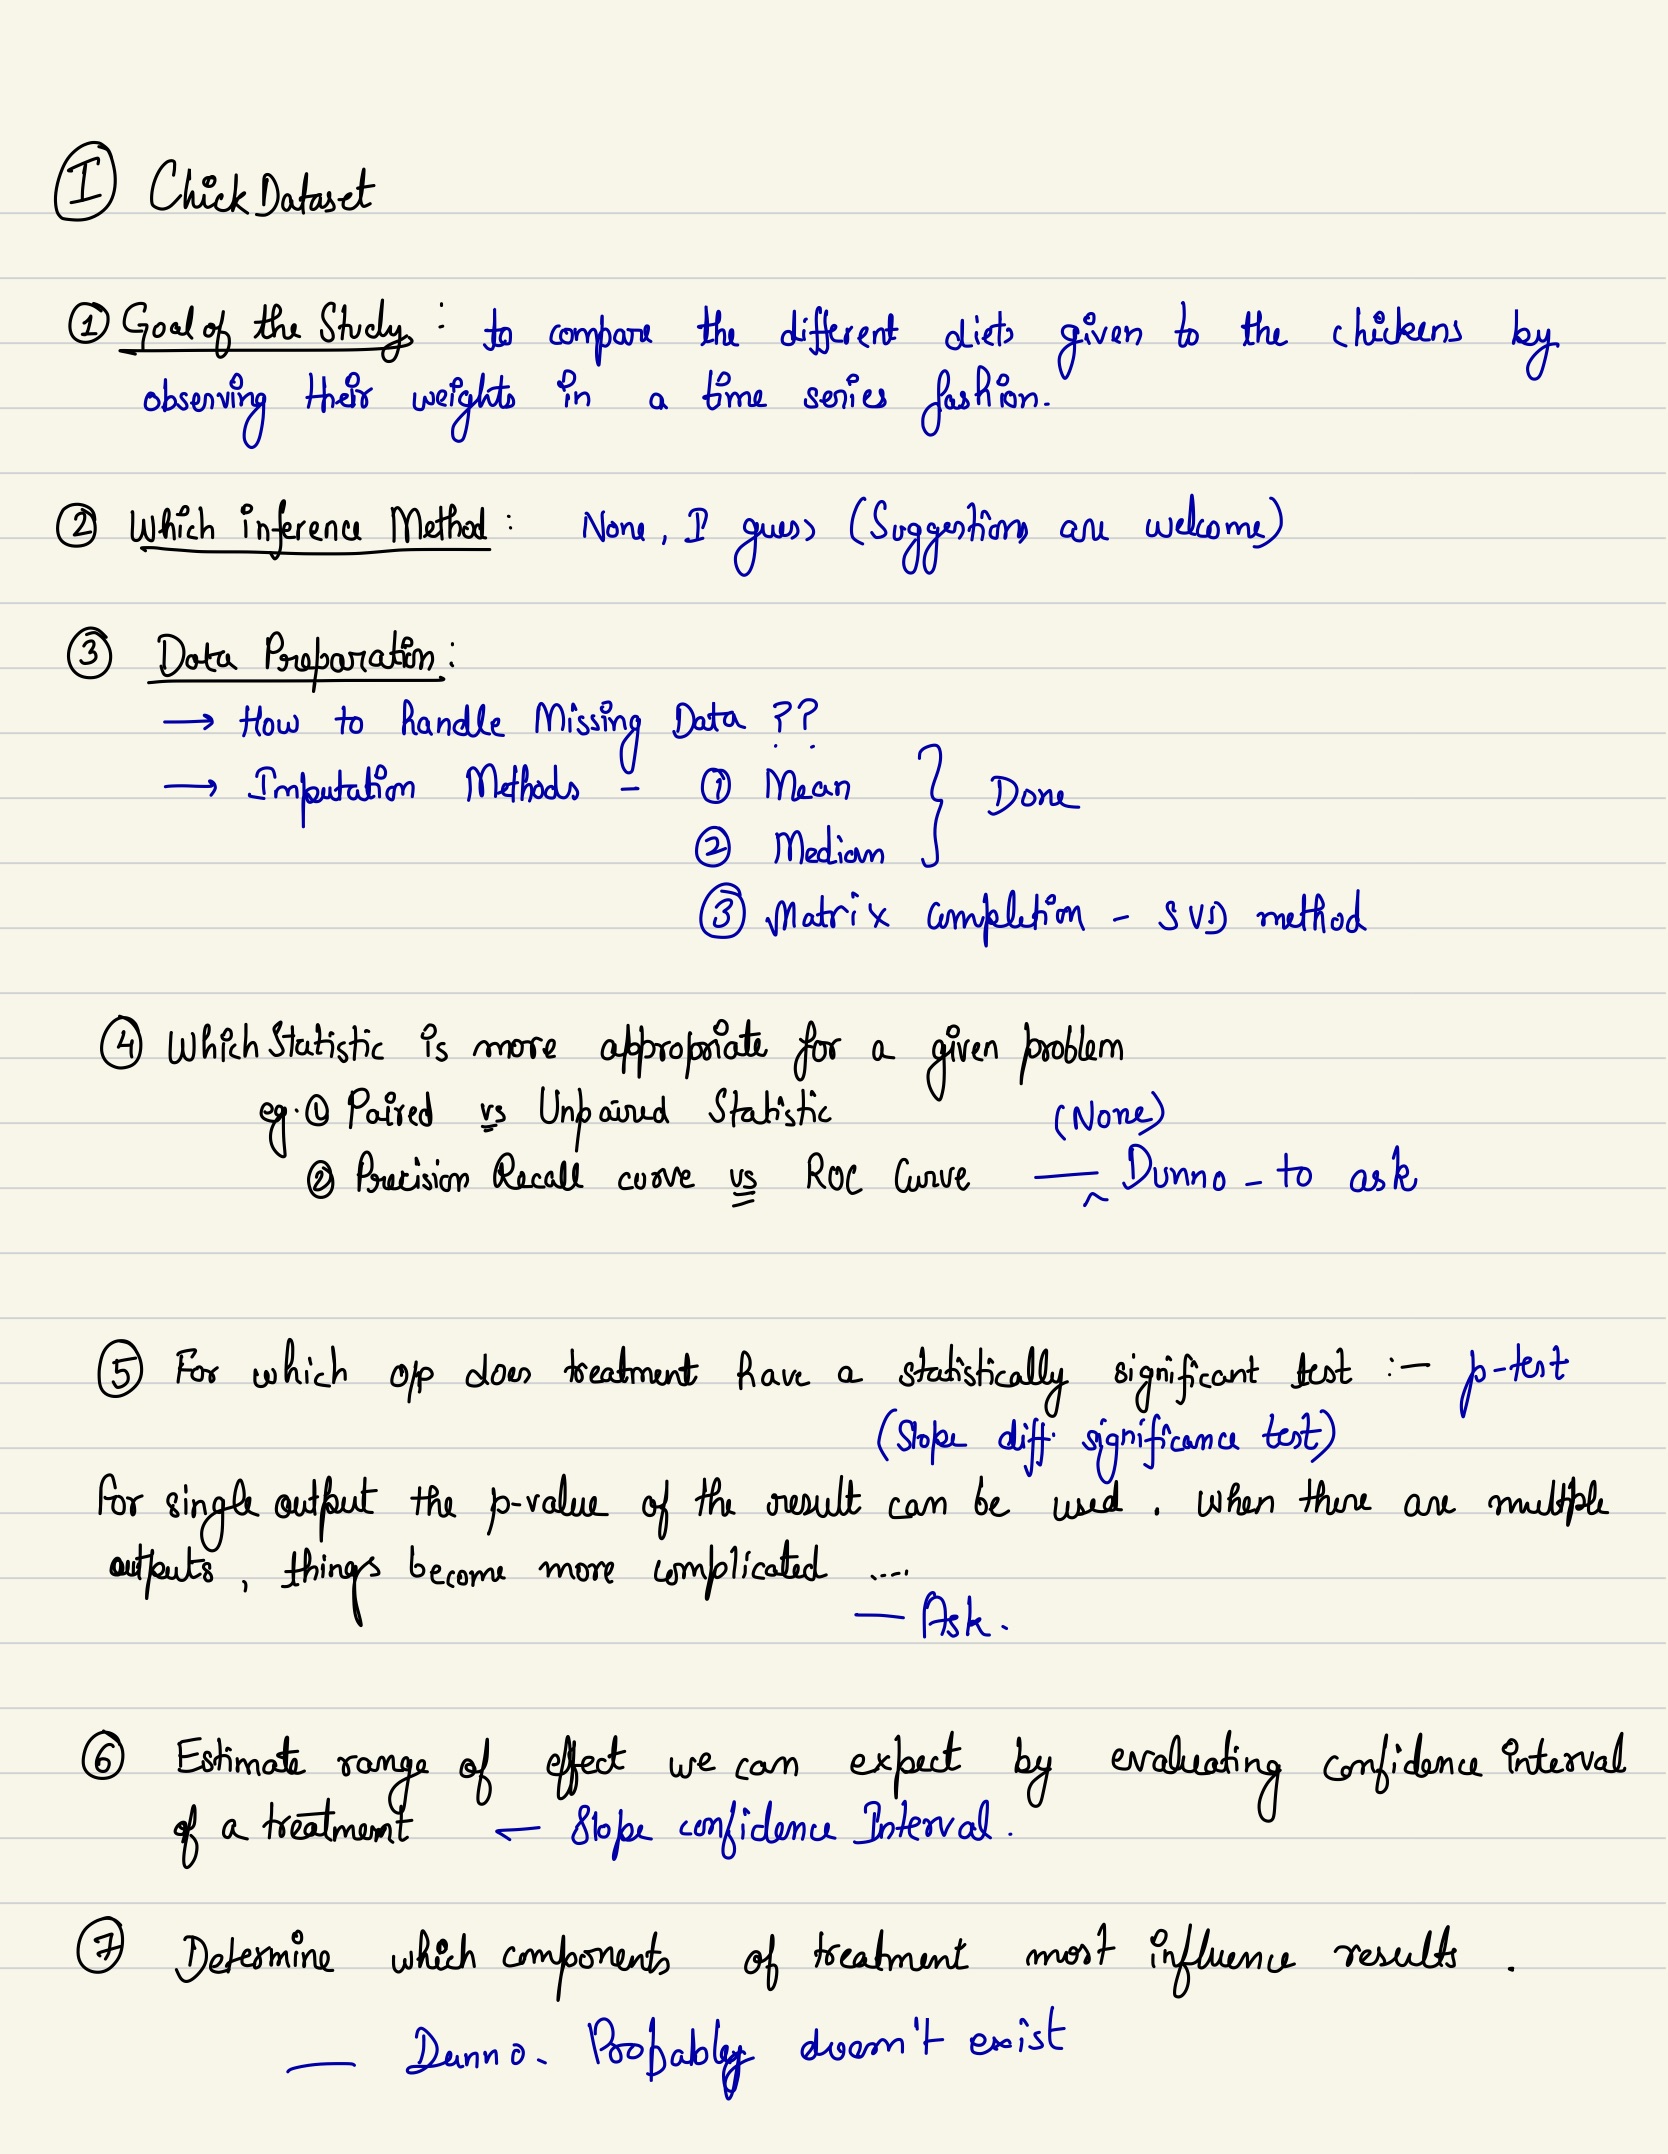 I Chick Dataset
① Goal of the Study : to compare the different diets given to the chickens by
observing their weights in a time series fashion.
② Which inference Method : None, I guess (Suggestions are welcome)
③ Data Preparation :
→ How to handle Missing Data ??
→ Imputation Methods - ① Mean } Done
② Median
③ Matrix completion - SVD method
④ Which Statistic is more appropriate for a given problem
eg. ① Paired vs Unpaired Statistic (None)
② Precision Recall curve vs ROC Curve — Dunno - to ask
⑤ For which o/p does treatment have a statistically significant test :- p-test
(Slope diff. significance test)
for single output the p-value of the result can be used . When there are multiple
outputs, things become more complicated ....
— Ask.
⑥ Estimate range of effect we can expect by evaluating confidence interval
of a treatment ← Slope confidence Interval.
⑦ Determine which components of treatment most influence results .
— Dunno. Probably doesn't exist